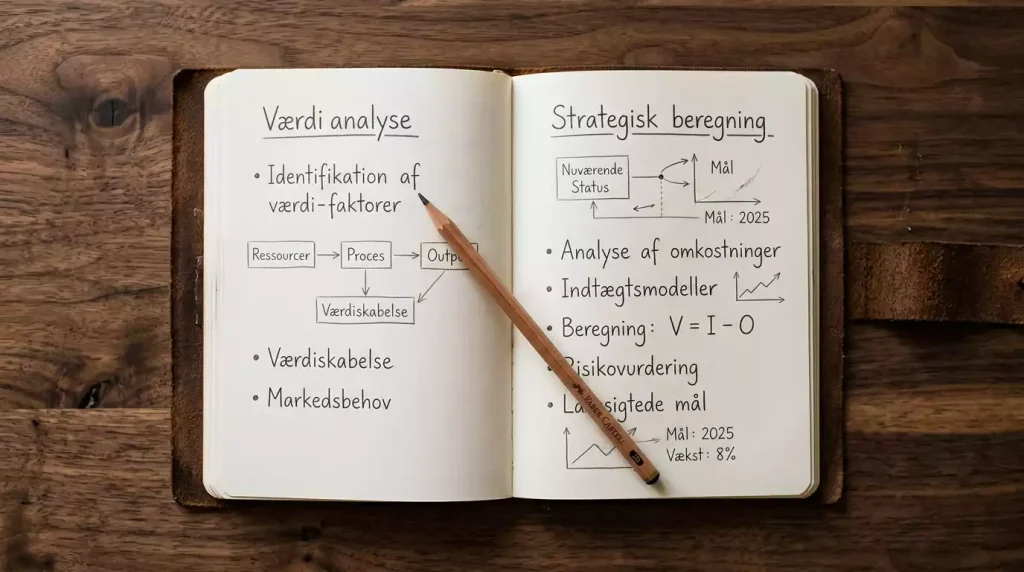 Værdi analyse
• Identifikation af
værdi-faktorer
Ressourcer
Proces
Værdiskabelse
• Værdiskabelse
• Markedsbehov
Strategisk beregning
Nuværende
Status
Mål
Mål: 2025
• Analyse af omkostninger
• Indtægtsmodeller
• Beregning: V = I - O
Risikovurdering
• mål
Mål: 2025
Vækst: 8%